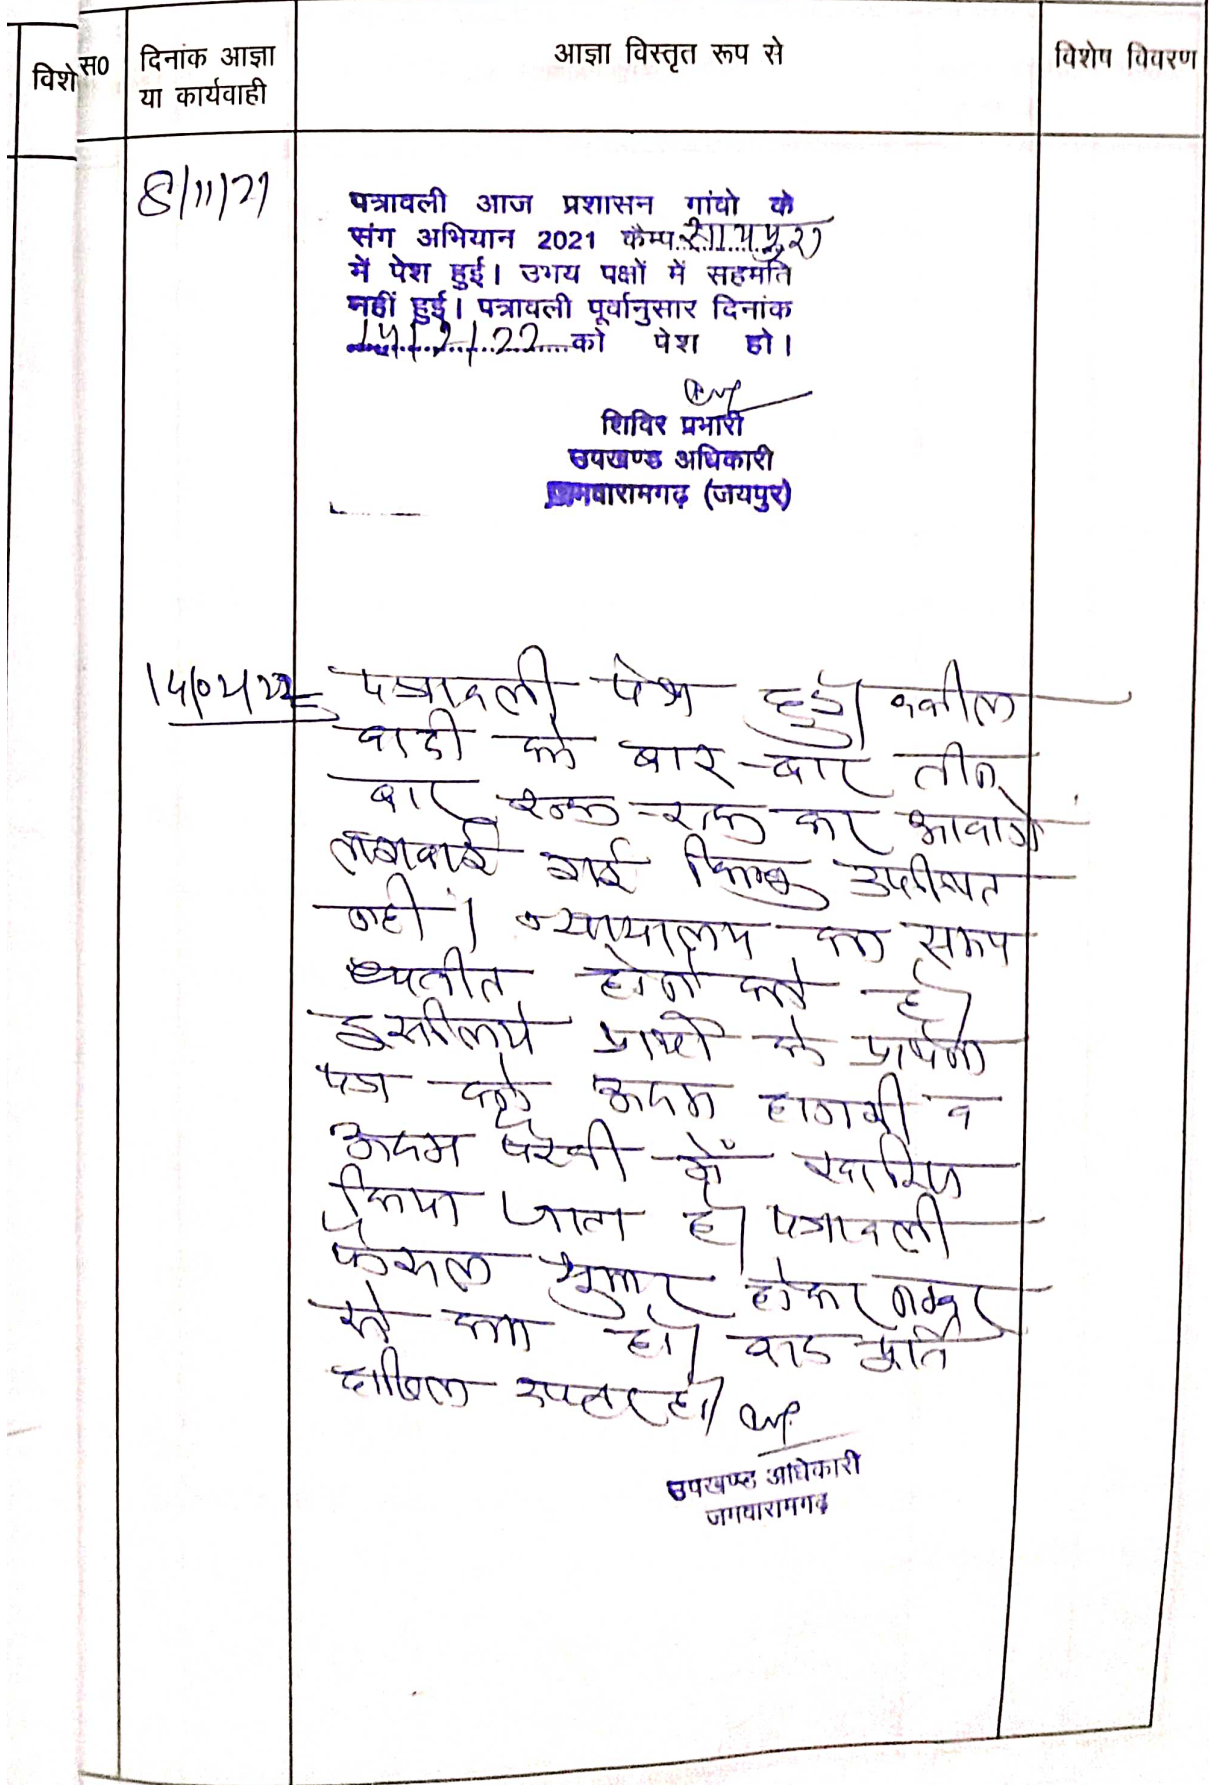 विशे
स0
दिनांक आज्ञा
या कार्यवाही
आज्ञा विस्तृत रूप से
विशेष विवरण
8/11/21
पत्रावली आज प्रशासन गांवो के
संग अभियान 2021 कैम्प रायपुर
में पेश हुई। उभय पक्षों में सहमति
नहीं हुई। पत्रावली पूर्वानुसार दिनांक
14/2/22 को पेश हो।
शिविर प्रभारी
उपखण्ड अधिकारी
जमवारामगढ़ (जयपुर)
पत्रावली पेश हुई। वकील
वादी को बार-बार तीन
बार रूक-रूक कर आवाजे
लगवाई गई किन्तु उपस्थित
नही। न्यायालय का समय
व्यतीत होने को है।
इसलिये प्रार्थी के प्रार्थना
पत्र को अदम हाजरी व
अदम पैरवी में खारिज
किया जाता है। पत्रावली
फैसल शुमार होकर नम्बर
से कम हो। बाद पूर्ति
दाखिल दफ्तर हो।
उपखण्ड अधिकारी
जमवारामगढ़